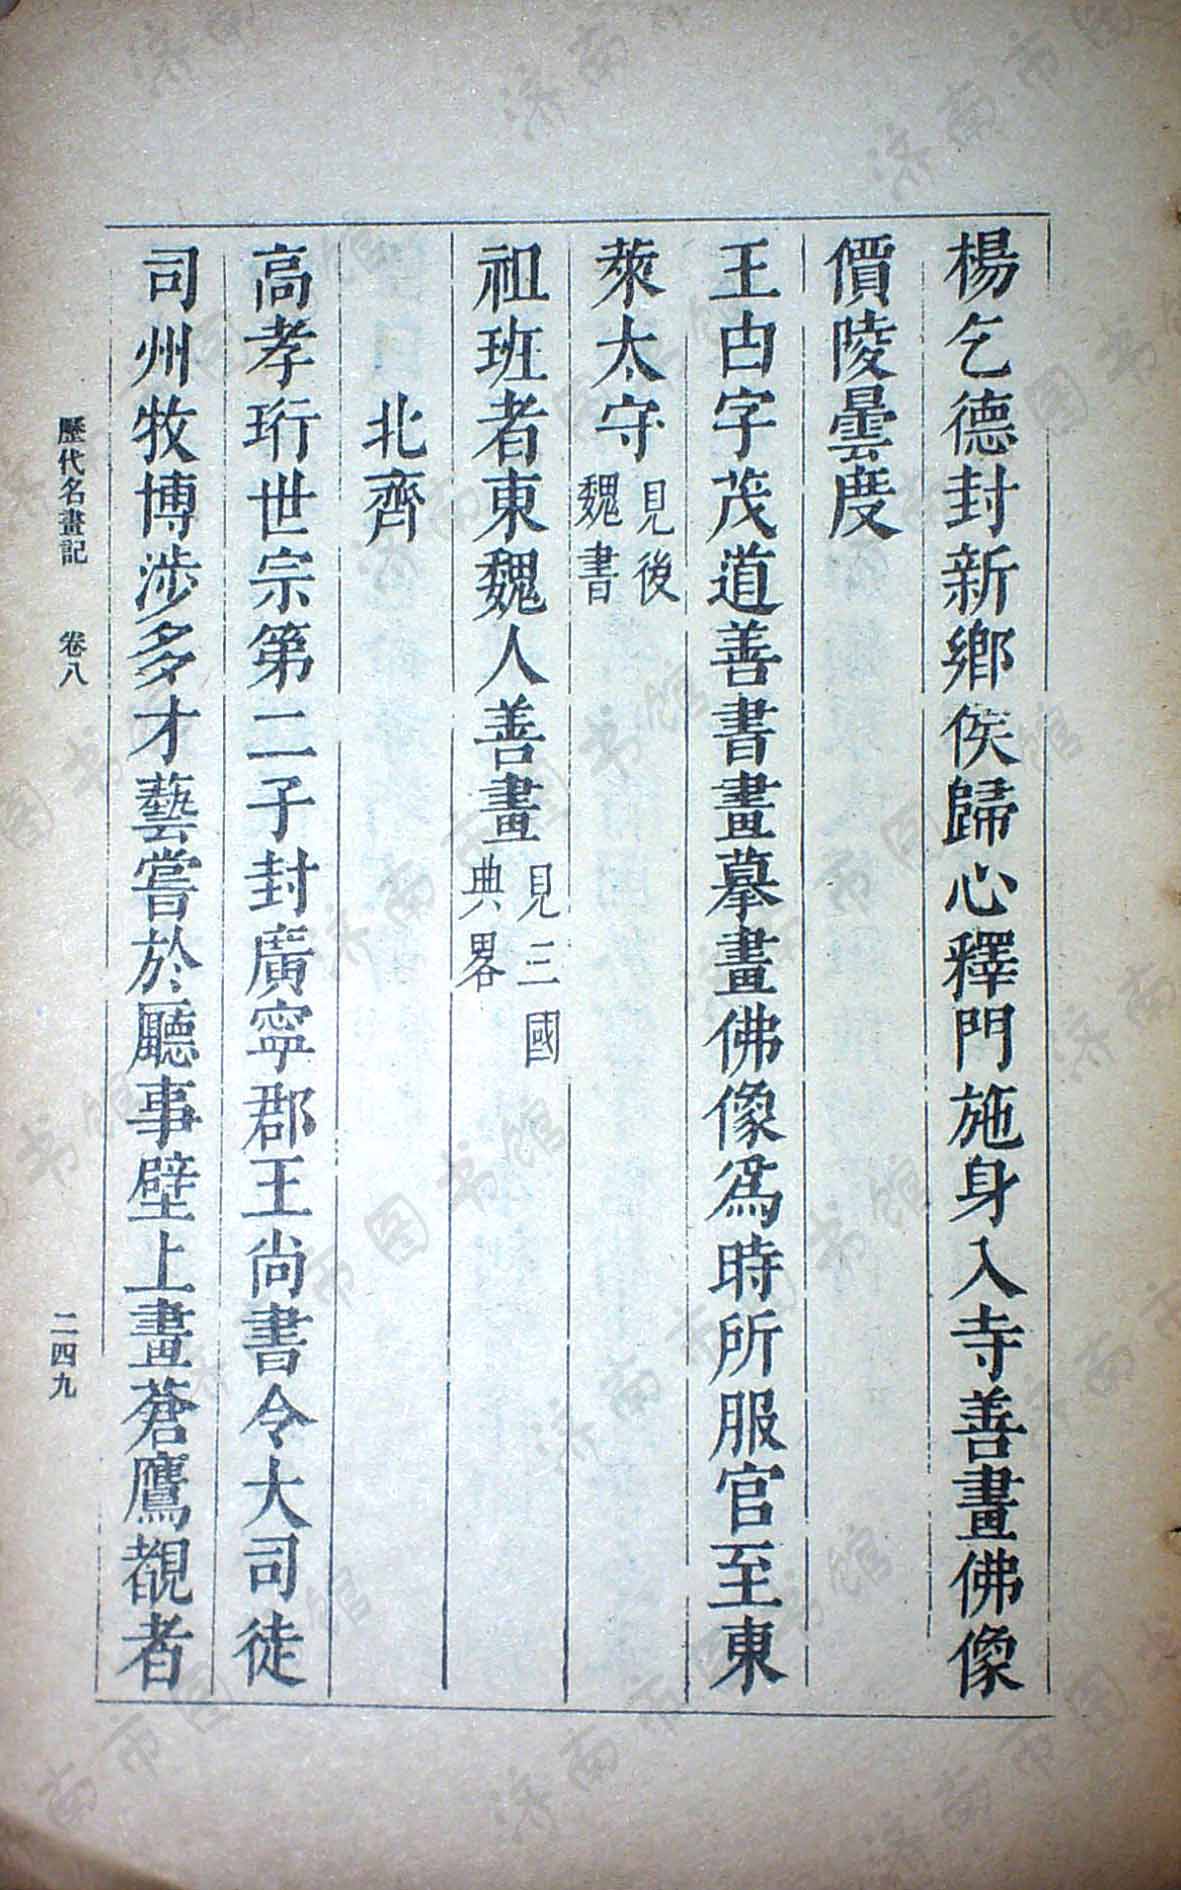 楊乞德封新鄉侯歸心釋門施身入寺善畫佛像
價陵曇度
王甴字茂道善書畫摹畫佛像爲時所服官至東
萊太守見後魏書
祖班者東魏人善畫見三國典畧
北齊
高孝珩世宗第二子封廣寧郡王尚書令大司徒
司州牧博涉多才藝嘗於廳事壁上畫蒼鷹覩者
歷代名畫記 卷八 二四九
济南市图书馆